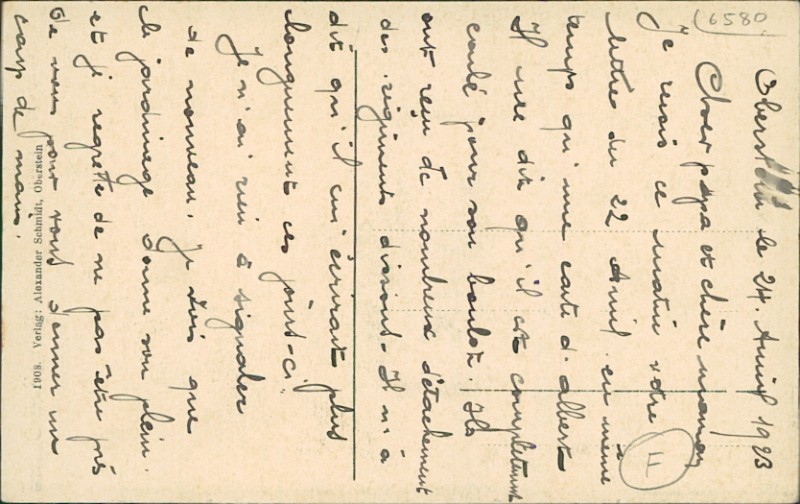 6580
Oberstein le 24. Avril 1923
Cher papa et chère maman
Je reçois ce matin votre
lettre du 22 Avril en même
temps qu'une carte d'Albert
Il me dit qu'il est complètement
coulé pour son boulot. Ils
ont reçu de nombreux détachement
des régiments dissous. Il m'a
dit qu'il m'écrirait plus
longuement ces jours-ci.
Je n'ai rien à signaler
de nouveau. Je vois que
le jardinage donne son plein.
et je regrette de ne pas être près
de vous pour vous donner un
coup de main.
4
1908. Verlag: Alexander Schmidt, Oberstein